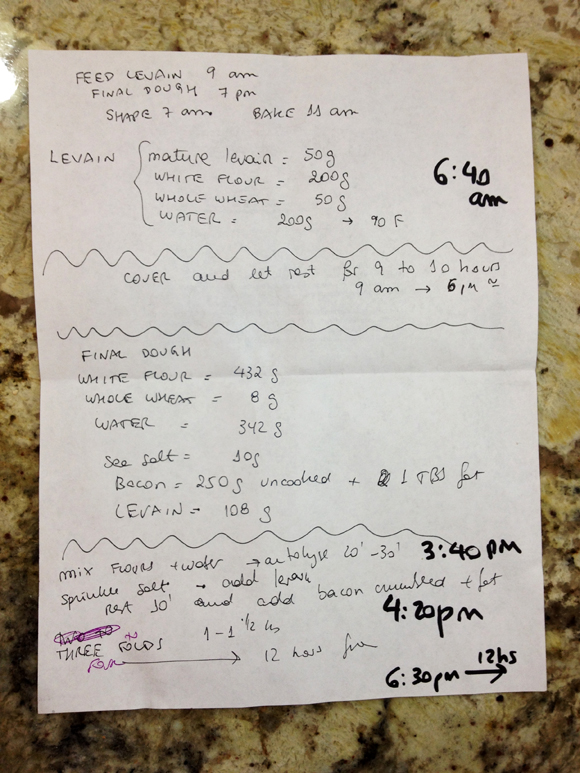 FEED LEVAIN 9 am
FINAL DOUGH 7 pm
SHAPE 7 am BAKE 11 am
LEVAIN
mature levain = 50g
WHITE FLOUR = 200g
WHOLE WHEAT = 50g
WATER = 200g → 90 F
6:40 am
COVER and let rest for 9 to 10 hours
9 am → 6 pm
FINAL DOUGH
WHITE FLOUR = 432 g
WHOLE WHEAT = 8 g
WATER = 342 g
Sea salt = 10g
Bacon = 250g uncooked + 1 TBS fat
LEVAIN = 108 g
mix flours + water → autolyse 20' - 30' 3:40pm
sprinkle salt - add levain
rest 10' and add bacon crumbled + fat
4:20pm
THREE FOLDS 1 - 1 1/2 hs
12 hours from
6:30pm → 12hs